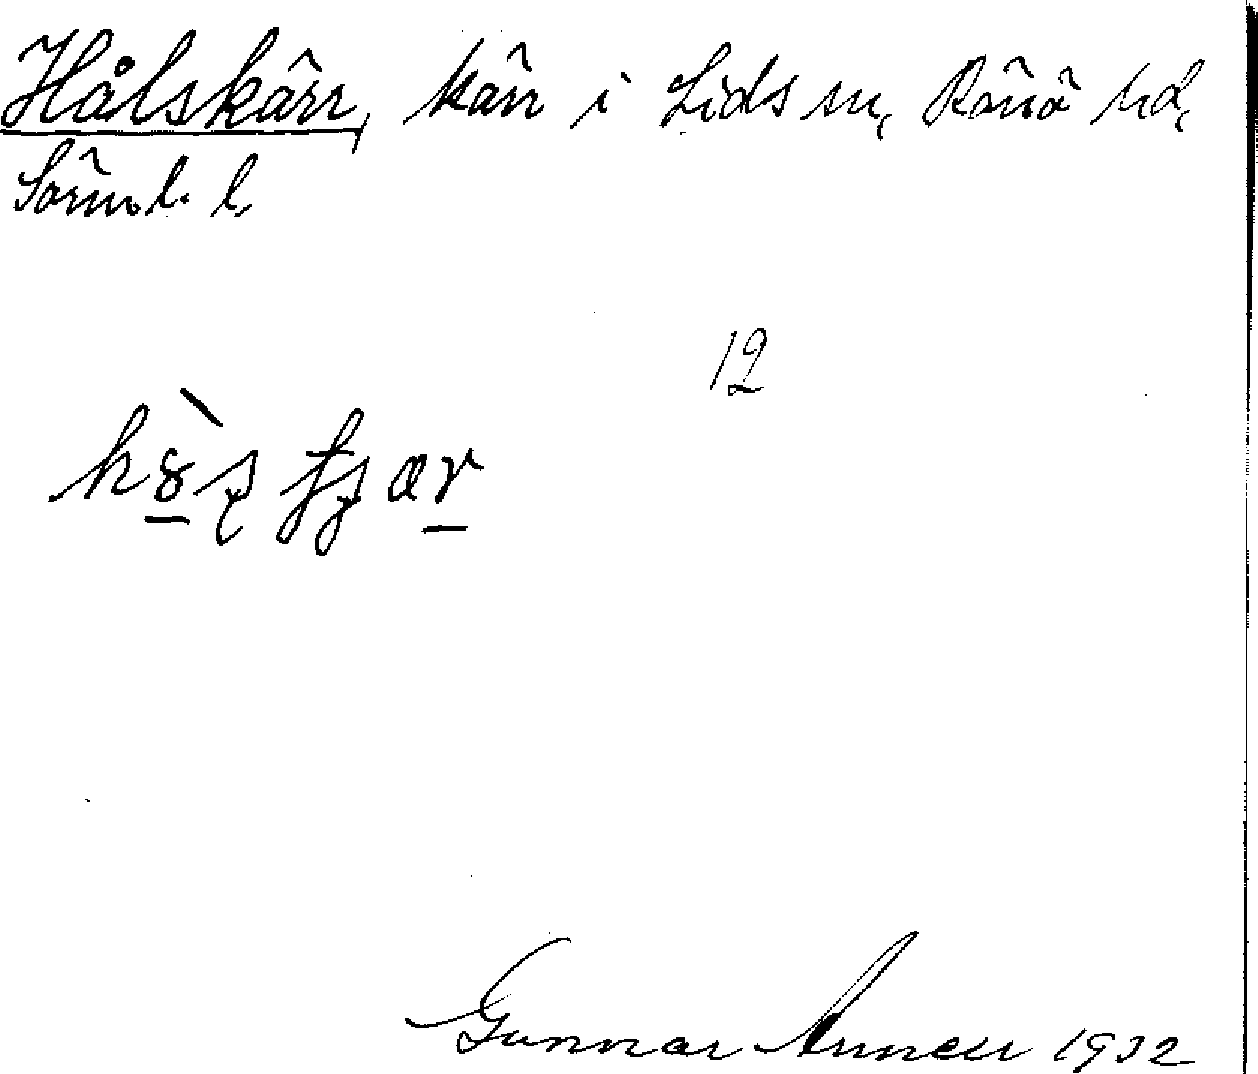 Hålskärr, kärr i Lids sn, Rönö hd,
Sörml. l.
12
Gunnar Annell 1932